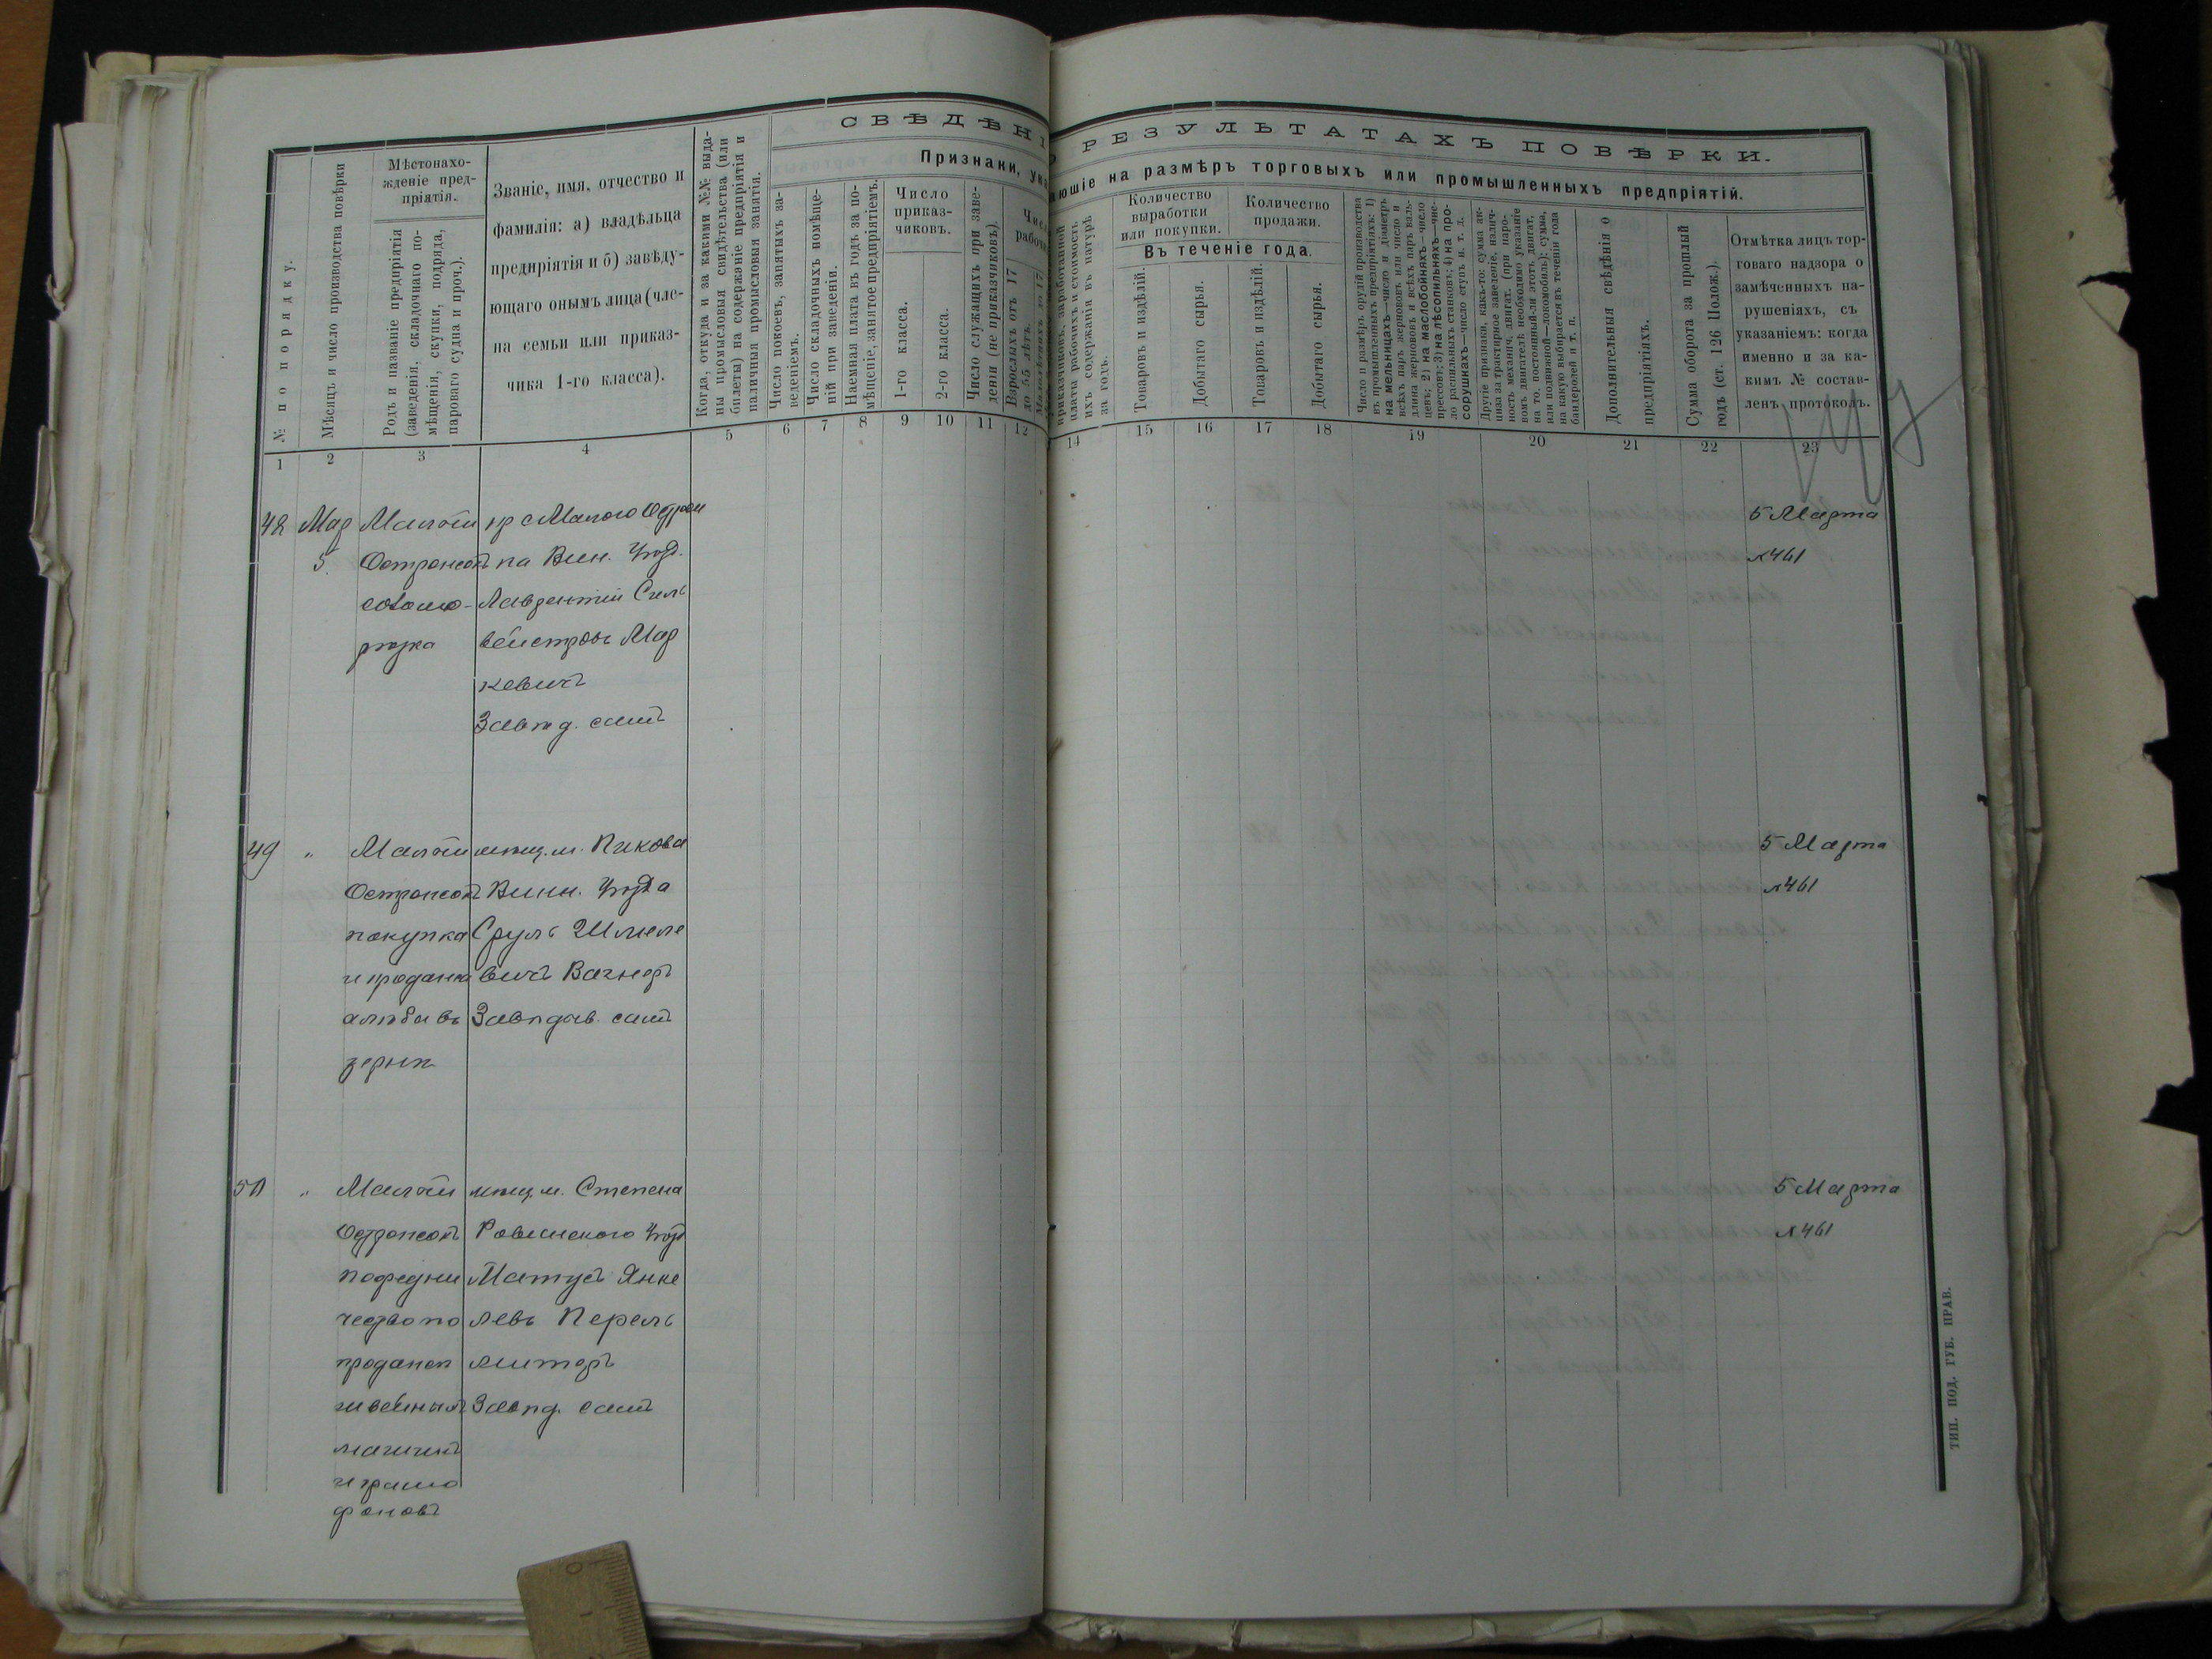 СВѢДѢНІ
О РЕЗУЛЬТАТАХЪ ПОВѢРКИ.
Признаки, ука
ающіе на размѣръ торговыхъ или промышленныхъ предпріятій.
№ по порядку.
Мѣсяцъ и число производства повѣрки
Мѣстонахо-
жденіе пред-
пріятія.
Родъ и названіе предпріятія
(заведенія, складочнаго по-
мѣщенія, скупки, подряда,
пароваго судна и проч.).
Званіе, имя, отчество и
фамилія: а) владѣльца
предпріятія и б) завѣду-
ющаго онымъ лица (чле-
на семьи или приказ-
чика 1-го класса).
Когда, откуда и за какими №№ выда-
ны промысловыя свидѣтельства (или
билеты) на содержаніе предпріятія и
наличныя промысловыя занятія.
Число покоевъ, занятыхъ за-
веденіемъ.
Число складочныхъ помѣще-
ній при заведеніи.
Наемная плата въ годъ за по-
мѣщеніе, занятое предпріятіемъ.
Число
приказ-
чиковъ.
1-го класса.
2-го класса.
Число служащихъ при заве-
деніи (не приказчиковъ).
Число
рабочи
Взрослыхъ отъ 17
до 55 лѣтъ.
Малолѣтнихъ до 17
приказчиковъ, заработанной
платы рабочихъ и стоимость
ихъ содержанія въ натурѣ
за годъ.
Количество
выработки
или покупки.
Количество
продажи.
Въ теченіе года.
Товаровъ и издѣлій.
Добытаго сырья.
Товаровъ и издѣлій.
Добытаго сырья.
Число и размѣръ орудій производства
въ промышленныхъ предпріятіяхъ: 1)
на мельницахъ—число и діаметръ
всѣхъ паръ жернововъ или число и
длина жернововъ и всѣхъ паръ валь-
цевъ; 2) на маслобойняхъ—число
прессовъ; 3) на лѣсопильняхъ—чис-
ло распильныхъ станковъ; 4) на про-
сорушкахъ—число ступъ и. т. д.
Другіе признаки, какъ-то: сумма ак-
циза за трактирное заведеніе, налич-
ность механич. двигат. (при паро-
вомъ двигателѣ необходимо указаніе
на то, постоянный-ли этотъ двигат.
или подвижной—локомобиль); сумма,
на какую выбирается въ теченіи года
бандеролей и т. п.
Дополнительныя свѣдѣнія о
предпріятіяхъ.
Сумма оборота за прошлый
годъ (ст. 126 Полож.).
Отмѣтка лицъ тор-
говаго надзора о
замѣченныхъ на-
рушеніяхъ, съ
указаніемъ: когда
именно и за ка-
кимъ № состав-
ленъ протоколъ.
1 2 3 4 5 6 7 8 9 10 11 12 14 15 16 17 18 19 20 21 22 23
48 Мар Малый кр с Малого Остро 5 Марта
5 Острожокъ ка Вин. Уѣзд. №461
Лаврентій Силь
вестровъ Мар
кевичъ
Завѣд. самъ
49 " Малый мѣщ. м. Пикова 5 Марта
Острожокъ Винн. Уѣзда №461
покупка Сруль Шмуле
и продажа вичъ Вагнеръ
хлѣба въ Завѣдыв. самъ
зернѣ
50 " Малый мѣщ. м. Степаня 5 Марта
Острожокъ Ровенского Уѣзд №461
посредни Матусъ Янке
чество по левъ Перель
продажѣ мутеръ
швейныхъ Завѣд. самъ
машинъ
и грамо
фоновъ
ТИП. ПОД. ГУБ. ПРАВ.